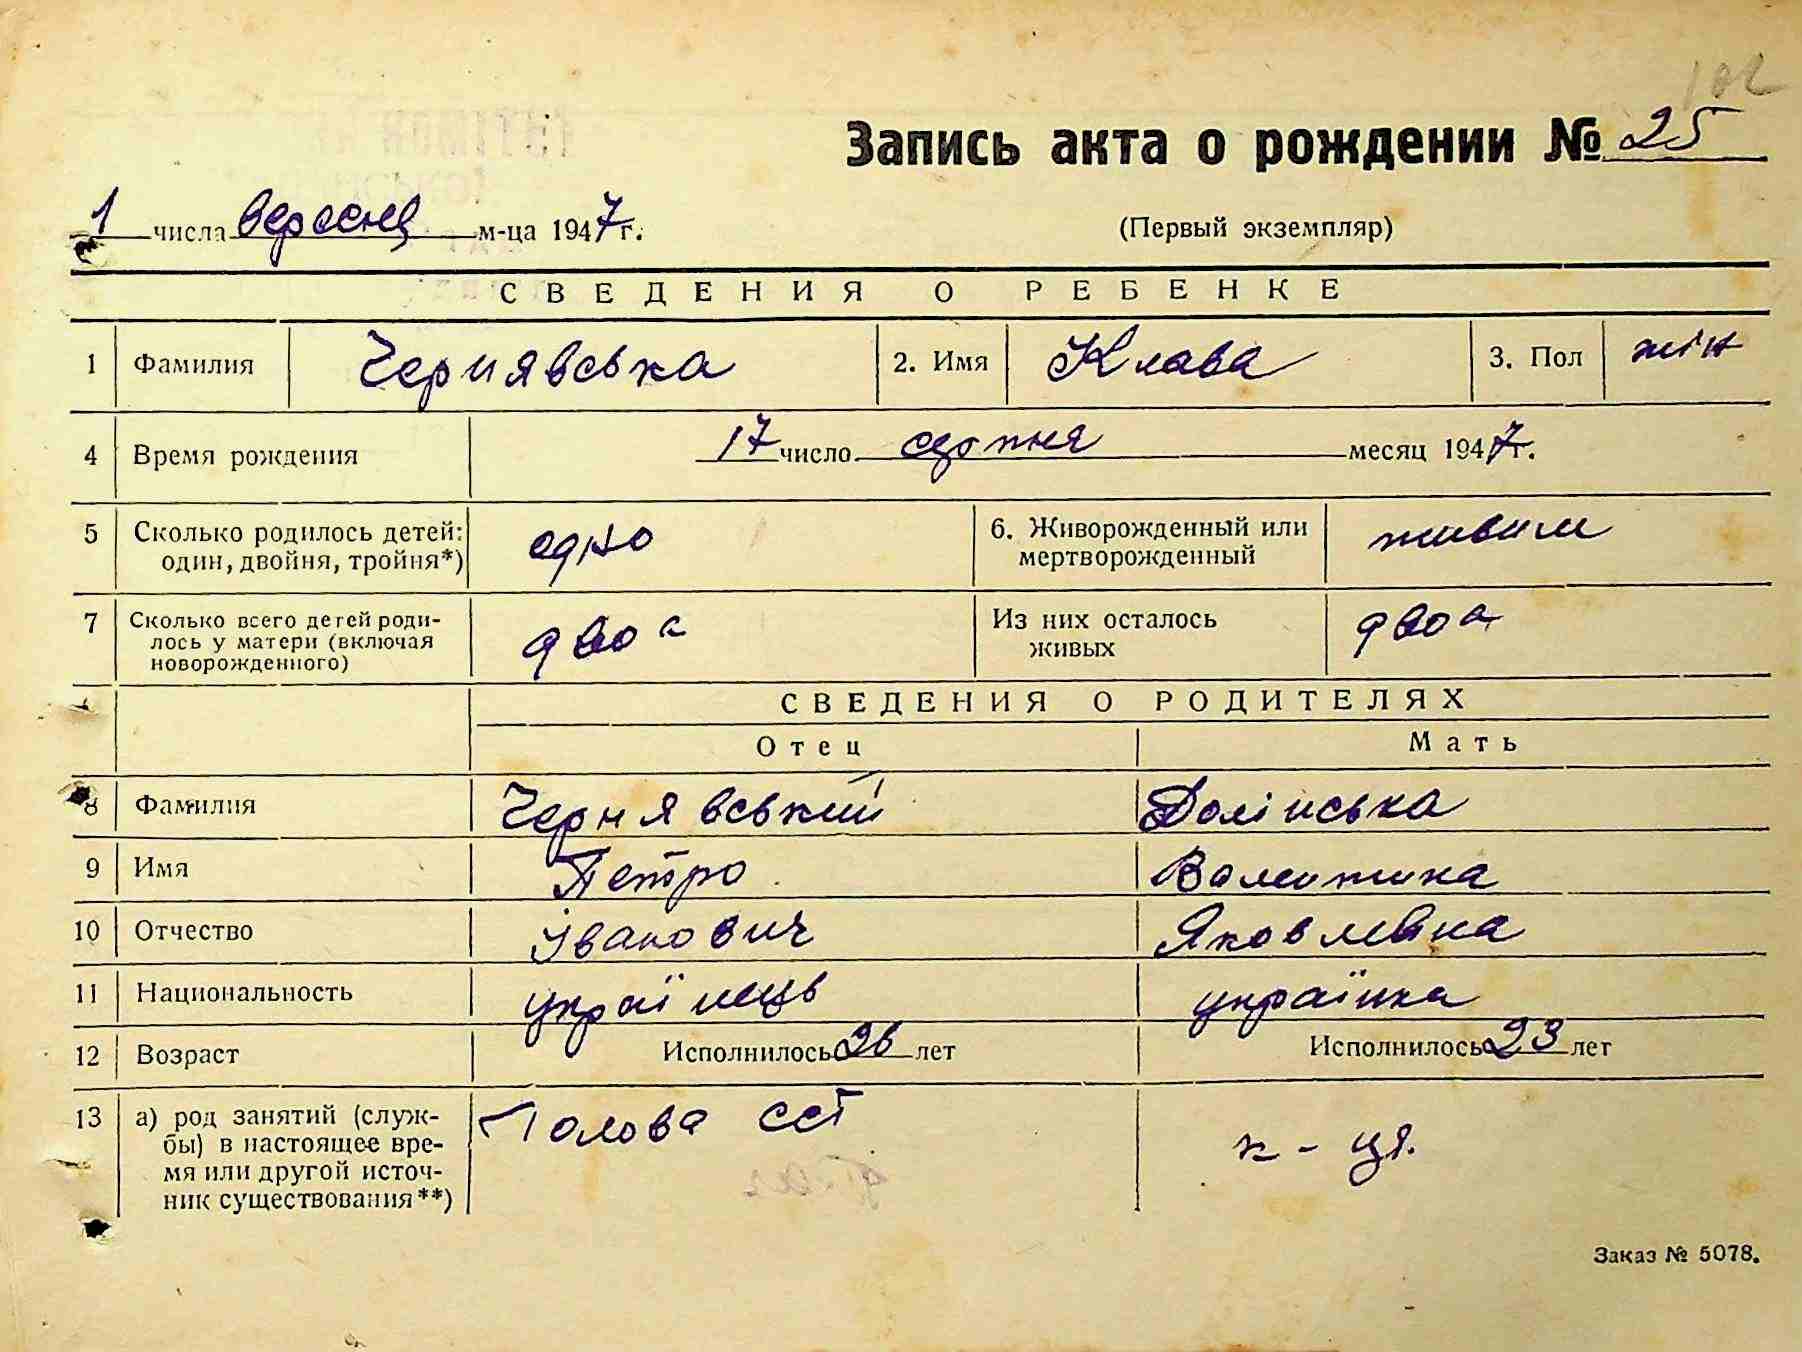 102
Запись акта о рождении № 25
1 числа вересня м-ца 1947 г.
(Первый экземпляр)
СВЕДЕНИЯ О РЕБЕНКЕ
1 Фамилия Чернявська 2. Имя Клава 3. Пол жін
4 Время рождения 17 число серпня месяц 1947 г.
5 Сколько родилось детей: один, двойня, тройня*) одно 6. Живорожденный или мертворожденный живим
7 Сколько всего детей роди-
лось у матери (включая
новорожденного) двоа Из них осталось живых двоа
СВЕДЕНИЯ О РОДИТЕЛЯХ
Отец Мать
8 Фамилия Чернявський Долінська
9 Имя Петро Валентина
10 Отчество Іванович Яковлевна
11 Национальность українець українка
12 Возраст Исполнилось 26 лет Исполнилось 23 лет
13 а) род занятий (служ-
бы) в настоящее вре-
мя или другой источ-
ник существования**) Голова ССТ к-ця.
Заказ № 5078.